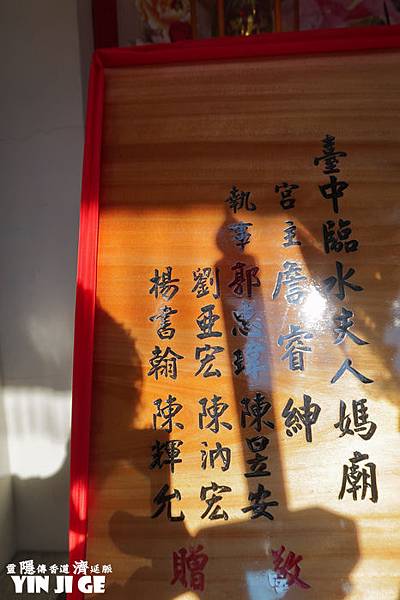 臺中臨水夫人媽廟
宮主 詹睿紳
執事 郭思瑋 陳昱安
劉亞宏 陳汭宏
楊書翰 陳輝允
敬贈
靈隱傳香道濟延脈
YIN JI GE